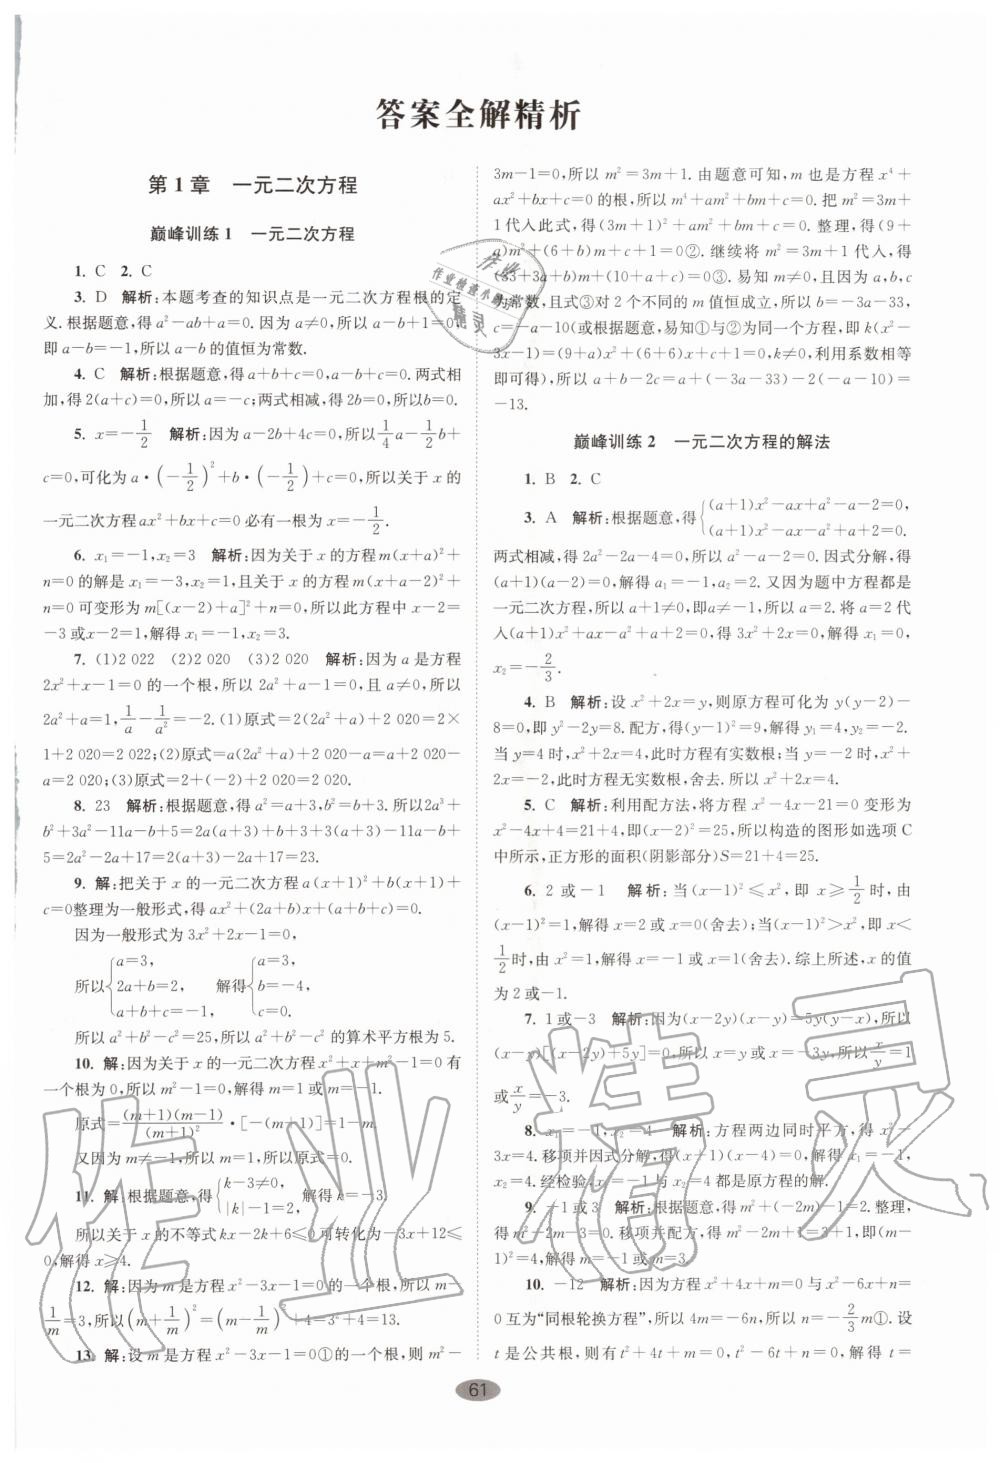 答案全解精析
第1章 一元二次方程
巅峰训练1 一元二次方程
1. C 2. C
3. D 解析:本题考查的知识点是一元二次方程根的定
义.根据题意,得a²-ab+a=0.因为a≠0,所以a-b+1=0,
即a-b=-1,所以a-b的值恒为常数.
4. C 解析:根据题意,得a+b+c=0,a-b+c=0.两式相
加,得2(a+c)=0,所以a=-c;两式相减,得2b=0,所以b=0.
5. x=-1/2 解析:因为a-2b+4c=0,所以1/4a-1/2b+
c=0,可化为a·(-1/2)²+b·(-1/2)+c=0,所以关于x的
一元二次方程ax²+bx+c=0必有一根为x=-1/2.
6. x₁=-1,x₂=3 解析:因为关于x的方程m(x+a)²+
n=0的解是x₁=-3,x₂=1,且关于x的方程m(x+a-2)²+
n=0可变形为m[(x-2)+a]²+n=0,所以此方程中x-2=
-3或x-2=1,解得x₁=-1,x₂=3.
7. (1)2 022 (2)2 020 (3)2 020 解析:因为a是方程
2x²+x-1=0的一个根,所以2a²+a-1=0,且a≠0,所以
2a²+a=1,1/a-1/a²=-2.(1)原式=2(2a²+a)+2 020=2×
1+2 020=2 022;(2)原式=a(2a²+a)+2 020-a=a+2 020-
a=2 020;(3)原式=2+(-2)+2 020=2 020.
8. 23 解析:根据题意,得a²=a+3,b²=b+3.所以2a³+
b²+3a²-11a-b+5=2a(a+3)+b+3+3(a+3)-11a-b+
5=2a²-2a+17=2(a+3)-2a+17=23.
9. 解:把关于x的一元二次方程a(x+1)²+b(x+1)+
c=0整理为一般形式,得ax²+(2a+b)x+(a+b+c)=0.
因为一般形式为3x²+2x-1=0,
所以{a=3, 2a+b=2, a+b+c=-1, 解得{a=3, b=-4, c=0.
所以a²+b²-c²=25,所以a²+b²-c²的算术平方根为5.
10. 解:因为关于x的一元二次方程x²+x+m²-1=0有
一个根为0,所以m²-1=0,解得m=1或m=-1.
原式=(m+1)(m-1)/(m+1)²·[-(m+1)]=1-m.
又因为m≠-1,所以m=1,所以原式=0.
11. 解:根据题意,得{k-3≠0, |k|-1=2, 解得k=-3.
所以关于x的不等式kx-2k+6≤0可转化为-3x+12≤
0,解得x≥4.
12. 解:因为m是方程x²-3x-1=0的一个根,所以m-
1/m=3,所以(m+1/m)²=(m-1/m)²+4=3²+4=13.
13. 解:设m是方程x²-3x-1=0①的一个根,则m²-
3m-1=0,所以m²=3m+1.由题意可知,m也是方程x⁴+
ax²+bx+c=0的根,所以m⁴+am²+bm+c=0.把m²=3m+
1代入此式,得(3m+1)²+am²+bm+c=0.整理,得(9+
a)m²+(6+b)m+c+1=0②.继续将m²=3m+1代入,得
(33+3a+b)m+(10+a+c)=0③.易知m≠0,且因为a,b,c
为常数,且式③对2个不同的m值恒成立,所以b=-3a-33,
c=-a-10(或根据题意,易知①与②为同一个方程,即k(x²-
3x-1)=(9+a)x²+(6+b)x+c+1=0,k≠0,利用系数相等
即可得),所以a+b-2c=a+(-3a-33)-2(-a-10)=
-13.
巅峰训练2 一元二次方程的解法
1. B 2. C
3. A 解析:根据题意,得{(a+1)x²-ax+a²-a-2=0, (a+1)x²+ax-a²+a+2=0.
两式相减,得2a²-2a-4=0,所以a²-a-2=0.因式分解,得
(a+1)(a-2)=0,解得a₁=-1,a₂=2.又因为题中方程都是
一元二次方程,所以a+1≠0,即a≠-1,所以a=2.将a=2代
入(a+1)x²+ax-a²+a+2=0,得3x²+2x=0,解得x₁=0,
x₂=-2/3.
4. B 解析:设x²+2x=y,则原方程可化为y(y-2)-
8=0,即y²-2y=8.配方,得(y-1)²=9,解得y₁=4,y₂=-2.
当y=4时,x²+2x=4,此时方程有实数根;当y=-2时,x²+
2x=-2,此时方程无实数根,舍去.所以x²+2x=4.
5. C 解析:利用配方法,将方程x²-4x-21=0变形为
x²-4x+4=21+4,即(x-2)²=25,所以构造的图形如选项C
中所示,正方形的面积(阴影部分)S=21+4=25.
6. 2或-1 解析:当(x-1)²≤x²,即x≥1/2时,由
(x-1)²=1,解得x=2或x=0(舍去);当(x-1)²>x²,即x<
1/2时,由x²=1,解得x=-1或x=1(舍去).综上所述,x的值
为2或-1.
7. 1或-3 解析:因为(x-2y)(x-y)=5y(y-x),所以
(x-y)[(x-2y)+5y]=0,所以x=y或x=-3y,所以x/y=1
或x/y=-3.
8. x₁=-1,x₂=4 解析:方程两边同时平方,得x²-
3x=4.移项并因式分解,得(x+1)(x-4)=0,解得x₁=-1,
x₂=4.经检验,x₁=-1与x₂=4都是原方程的解.
9. -1或3 解析:根据题意,得m²+(-2m)-1=2.整理,
得m²-2m-3=0.移项并配方,得(m-1)²=4,即m-1=
±2,解得m=-1或m=3.
10. -12 解析:因为方程x²+4x+m=0与x²-6x+n=
0互为“同根轮换方程”,所以4m=-6n,所以n=-2/3m①.设
t是公共根,则有t²+4t+m=0,t²-6t+n=0,解得t=
61
作业检查小助手
作业精灵
作业精灵